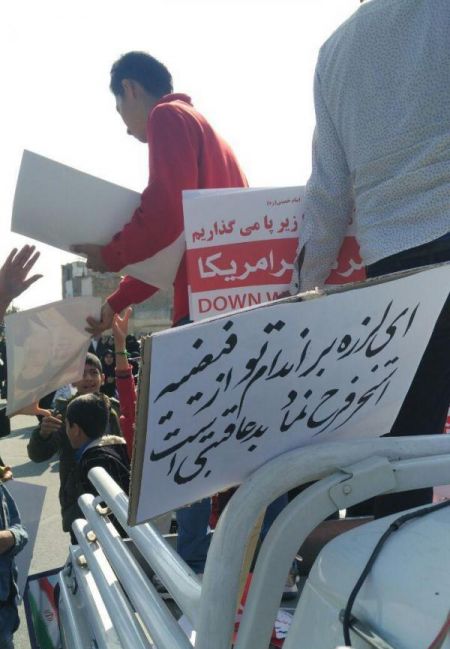 امام خمینی(ره)
زیر پا می گذاریم
بر امریکا
DOWN W
ای لرزه بر اندام تو از فیفیه
استخر فرح نماد بد عاقبتی است